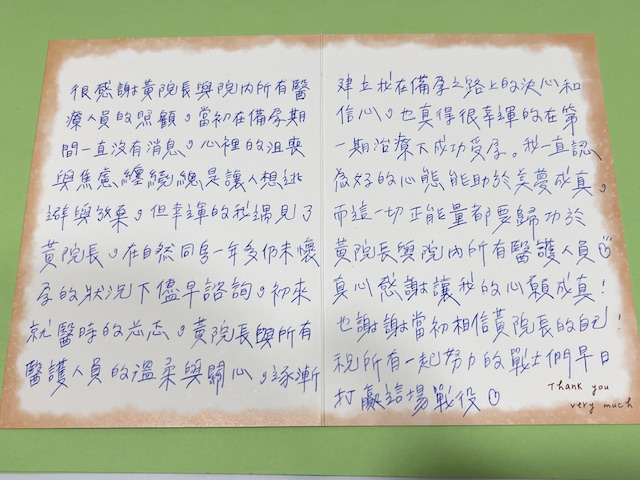 很感謝黃院長與院內所有醫
療人員的照顧。當初在備孕期
間一直沒有消息。心裡的沮喪
與焦慮纏繞總是讓人想逃
避與放棄。但幸運的我遇見了
黃院長。在自然同房一年多仍未懷
孕的狀況下儘早諮詢。初來
就醫時的忐忑。黃院長與所有
醫護人員的溫柔與關心。逐漸
建立我在備孕之路上的決心和
信心。也真得很幸運的在第
一期治療下成功受孕。我一直認
為好的心態能助於美夢成真。
而這一切正能量都要歸功於
黃院長與院內所有醫護人員
真心感謝讓我的心願成真!
也謝謝當初相信黃院長的自己!
祝所有一起努力的戰士們早日
打贏這場戰役
Thank you
very much